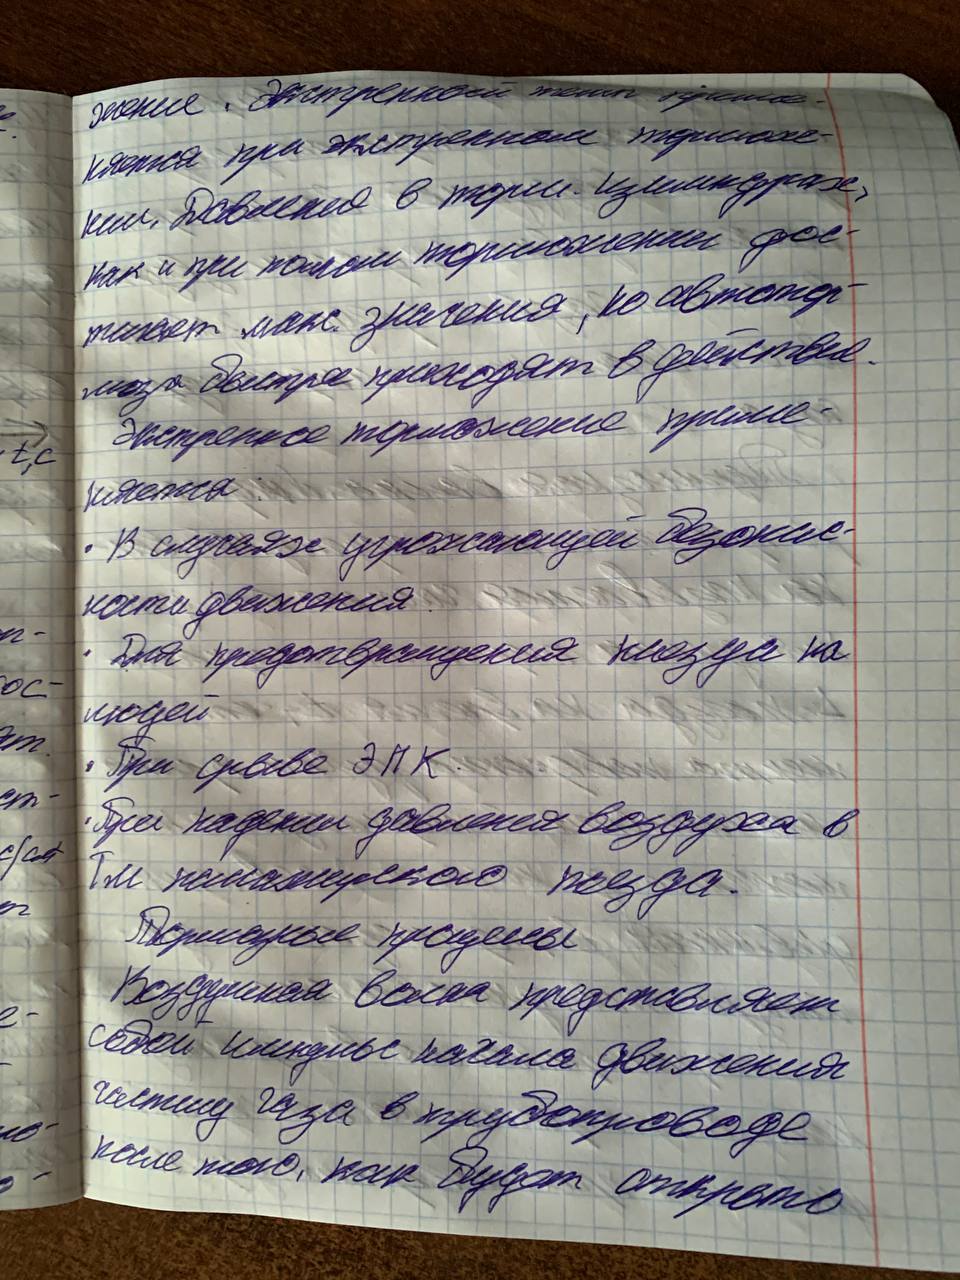 жение. Экстренный темп приме-
няется при экстренном торможе-
нии. Давления в торм. цилиндрах,
как и при полном торможении дос-
тигает макс. значения, но автотор-
моза быстрее приходят в действие.
Экстренное торможение приме-
няется:
• В случаях угрожающей безопас-
ности движения
• Для предотвращения наезда на
людей
• При срыве ЭПК.
• При падении давления воздуха в
ТМ пассажирского поезда.
Тормозные процессы
Воздушная волна представляет
собой импульс начала движения
частиц газа в трубопроводе
после того, как будет открыто
t,c